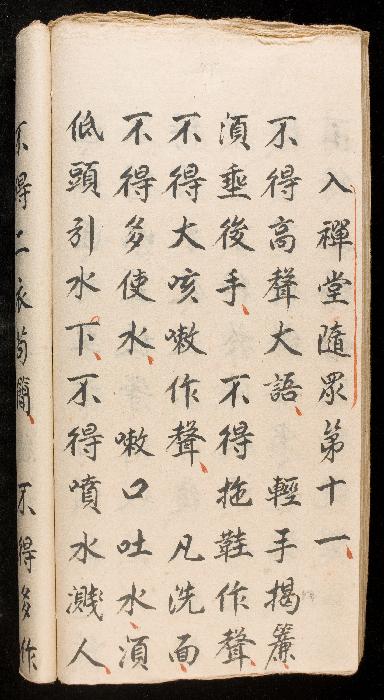 入禪堂隨眾第十一
不得高聲大語輕手揭簾
須垂後手不得拖鞋作聲
不得大咳嗽作聲凡洗面
不得多使水嗽口吐水須
低頭引水下不得噴水濺人
不得二衣茍簡不得多作